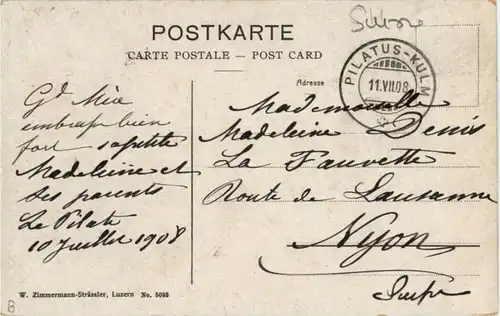 POSTKARTE
CARTE POSTALE — POST CARD
PILATUS-KULM
11.VII.08
Adresse
Gd Mia
embrasse bien
fort sa petite
Madeleine et
ses parents
Le Pilate
10 Juillet 1908
Mademoiselle
Madeleine Denis
La Fauvette
Route de Lausanne
Nyon
Suisse
W. Zimmermann-Strässler, Luzern No. 5093
B